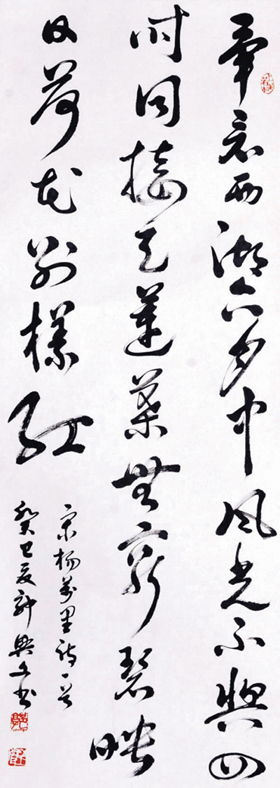 畢竟西湖六月中風光不與四
時同接天蓮葉無窮碧映
日荷花別樣紅
宋楊萬里詩一首
癸巳夏許興文書